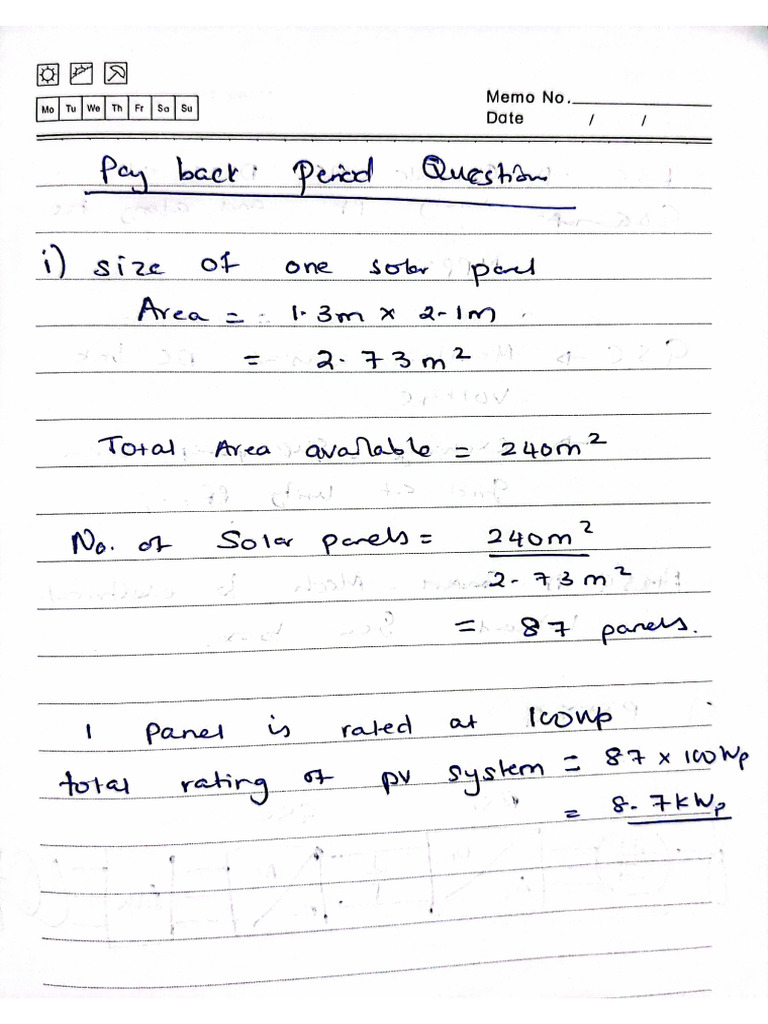 Memo No.
Mo Tu We Th Fr Sa Su
Date / /
Pay back Period Question
i) size of one solar panel
Area = 1.3m x 2.1m
= 2.73m²
Total Area available = 240m²
No. of Solar panels = 240m²
2.73m²
= 87 panels.
1 Panel is rated at 100Wp
total rating of pv system = 87 x 100Wp
= 8.7kWp